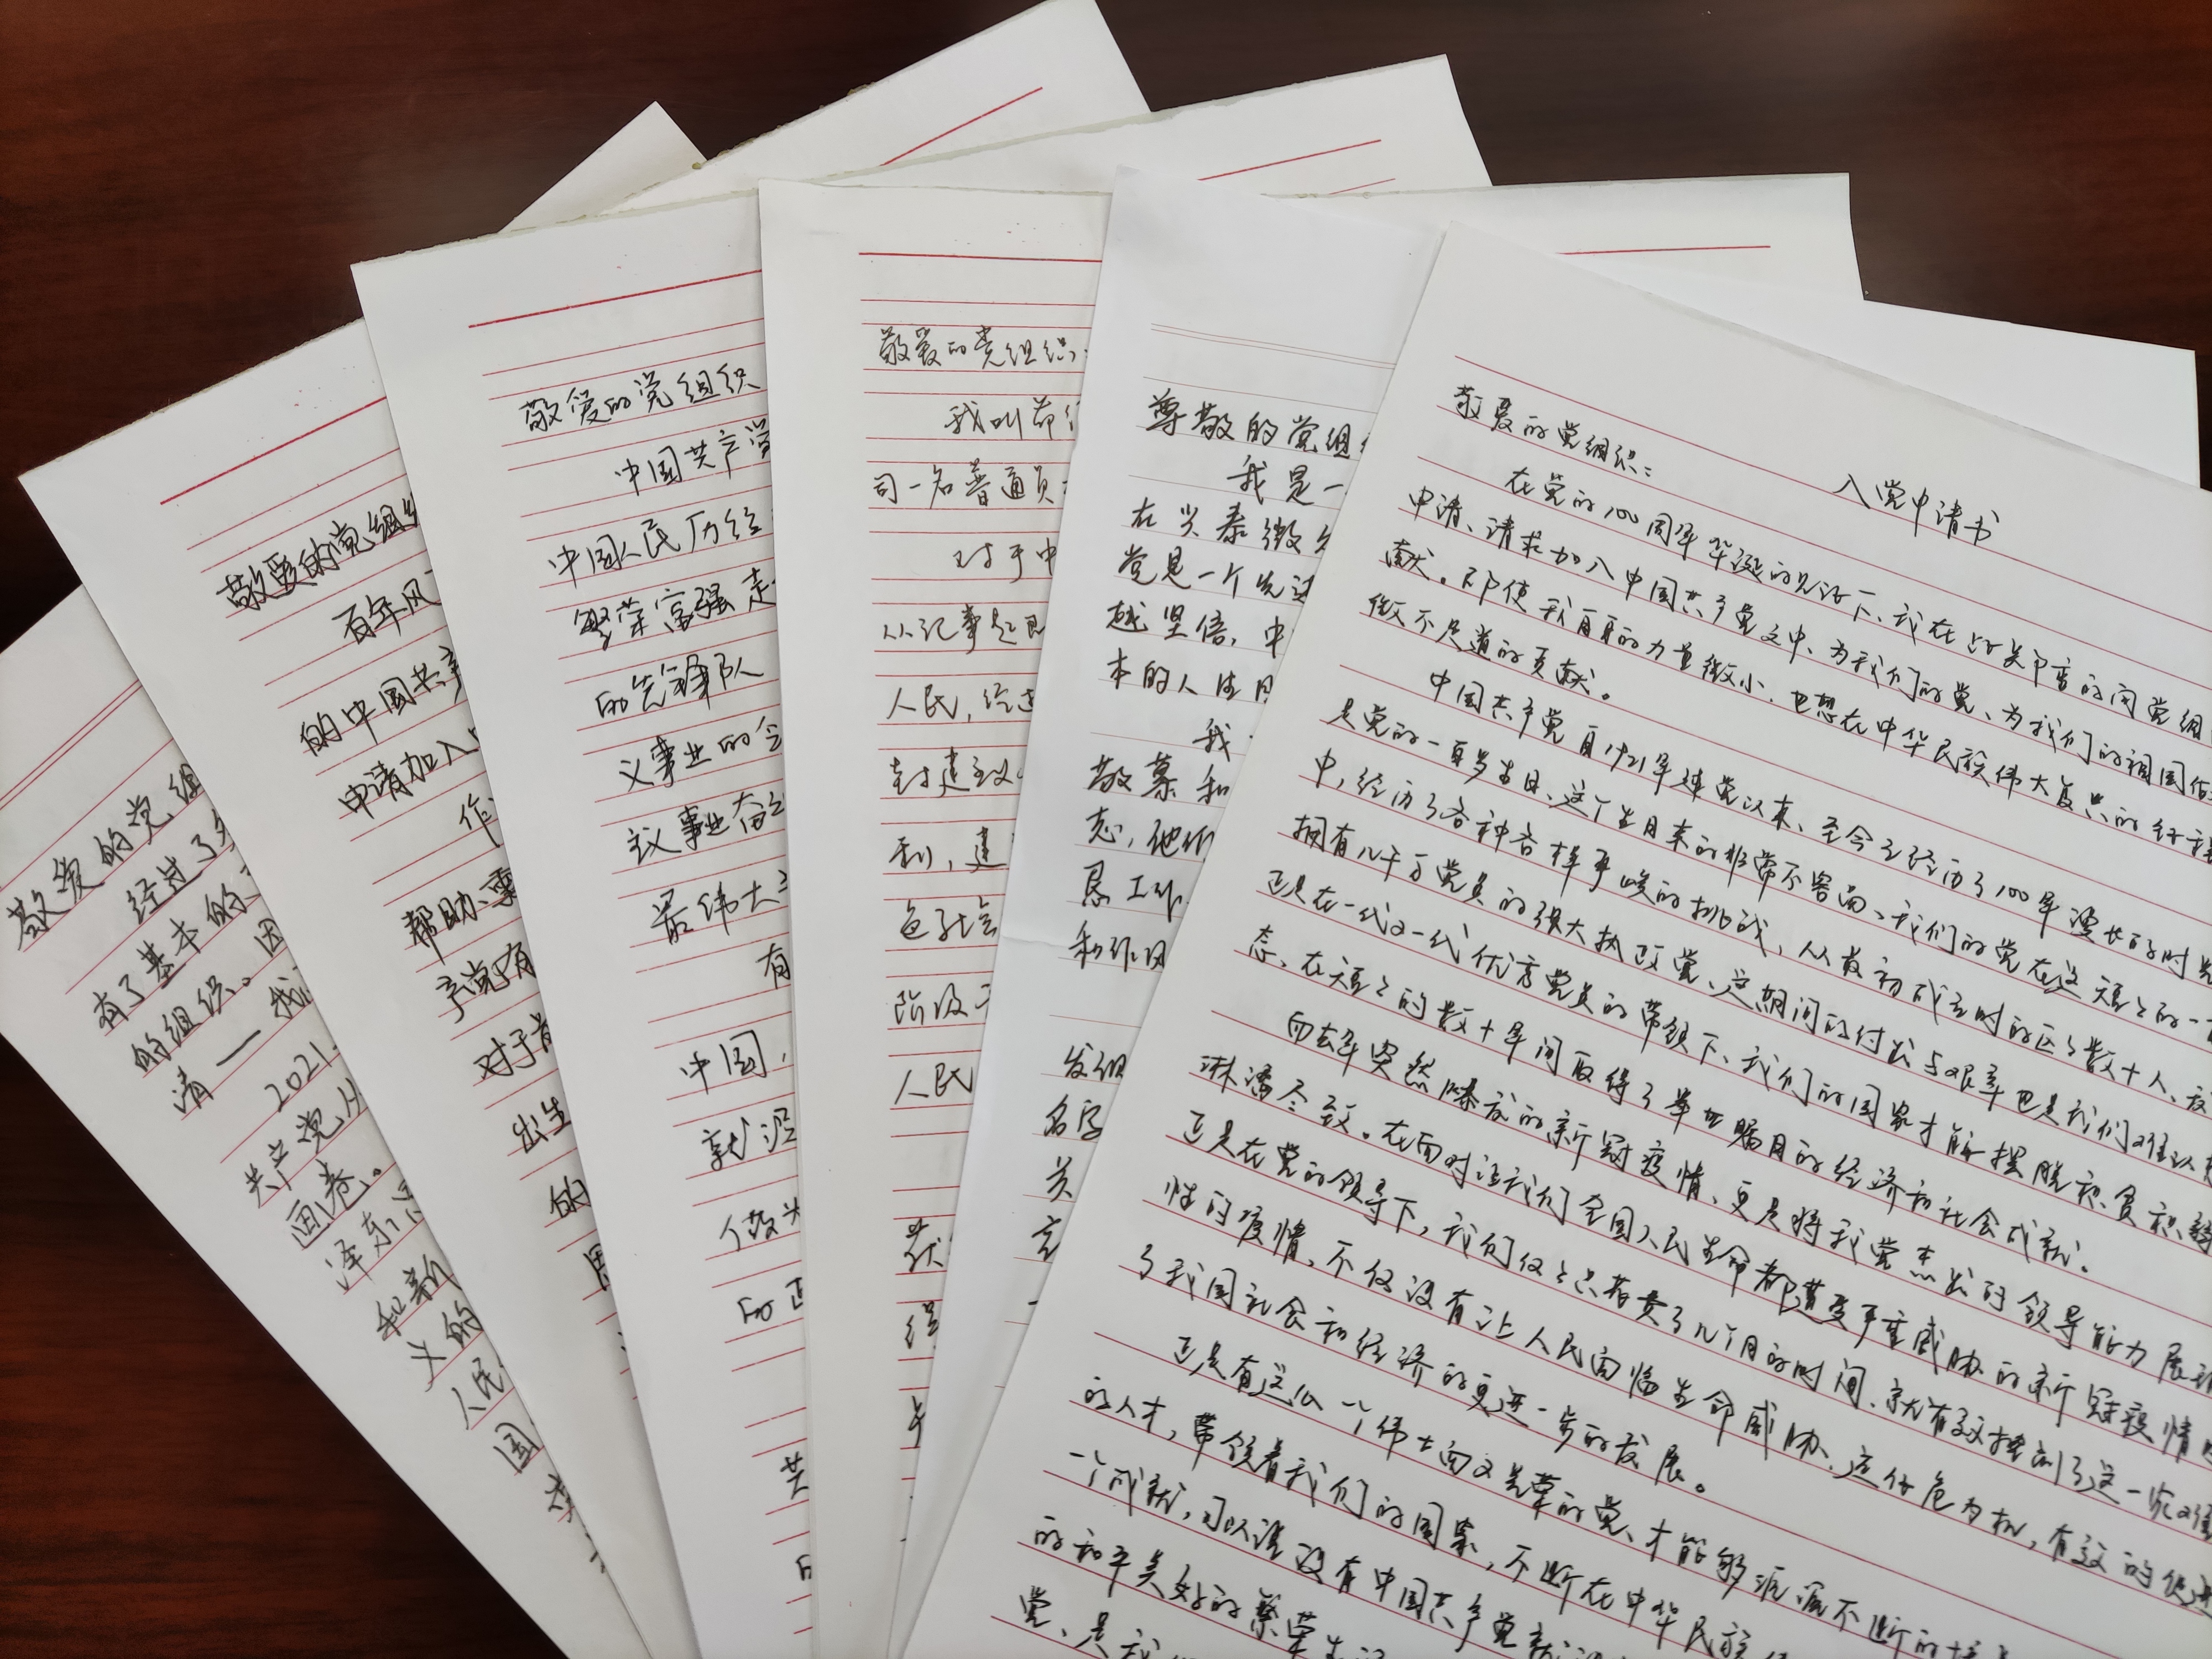 敬爱的党组
经过了
有了基本的
的组织。因
清一我
2021.
共产党从
画卷。
泽东
和新
义的
人民
国
敬爱的党组织
百年风
的中国共产
申请加入
作
帮助、
产党有
对于
出生
的
敬爱的党组织
中国共产党
中国人民历经
繁荣富强走
的先锋队
义事业的
议事业奋
最伟大
有
中国,
就
做为
敬爱的党组织:
我叫
司一名普通员
对于中
从记事起
人民,经过
封建主义
利,建
包了社会
阶级
人民
尊敬的党组织
我是一
在兴泰微
党是一个先进
越坚信,中
本的人生
我
敬慕和
志,他们
恳工作
和作风
发组
名字
关
言
入党申请书
敬爱的党组织:
在党的100周年华诞的见证下、我在此关郑重的向党组
申请、请求加入中国共产党之中、为我们的党、为我们的祖国
献。即使我自身的力量微小.也想在中华民族伟大复兴的
微不足道的贡献。
中国共产党自1921年建党以来、至今已经历了100年漫长的时
是党的一百岁生日、这个生日来的非常不容易、我们的党在这短短的一
中,经历了各种各样严峻的挑战,从最初成立时的区区数十人、
拥有几千万党员的强大执政党、这期间的付出与艰辛也是我们难以
正是在一代又一代优秀党员的带领下、我们的国家才能摆脱积贫积弱
态、在短短的数十年间取得了举世瞩目的经济和社会成就。
而去年突然爆发的新冠疫情、更是将我党杰出的领导能力展现
淋漓尽致。在面对这我们全国人民生命都遭受严重威胁的新冠疫情
正是在党的领导下,我们仅仅只花费了几个月的时间、就有效控制了这一次
性的疫情、不仅没有让人民面临生命威胁、还化危为机,有效的促进
了我国社会和经济的更进一步的发展。
正是有这么一个伟大而又光荣的党、才能够源源不断的
的人才,带领着我们的国家,不断在中华民族
一个成就,可以说没有中国共产党就没
的和平美好的繁荣生活
党、是我